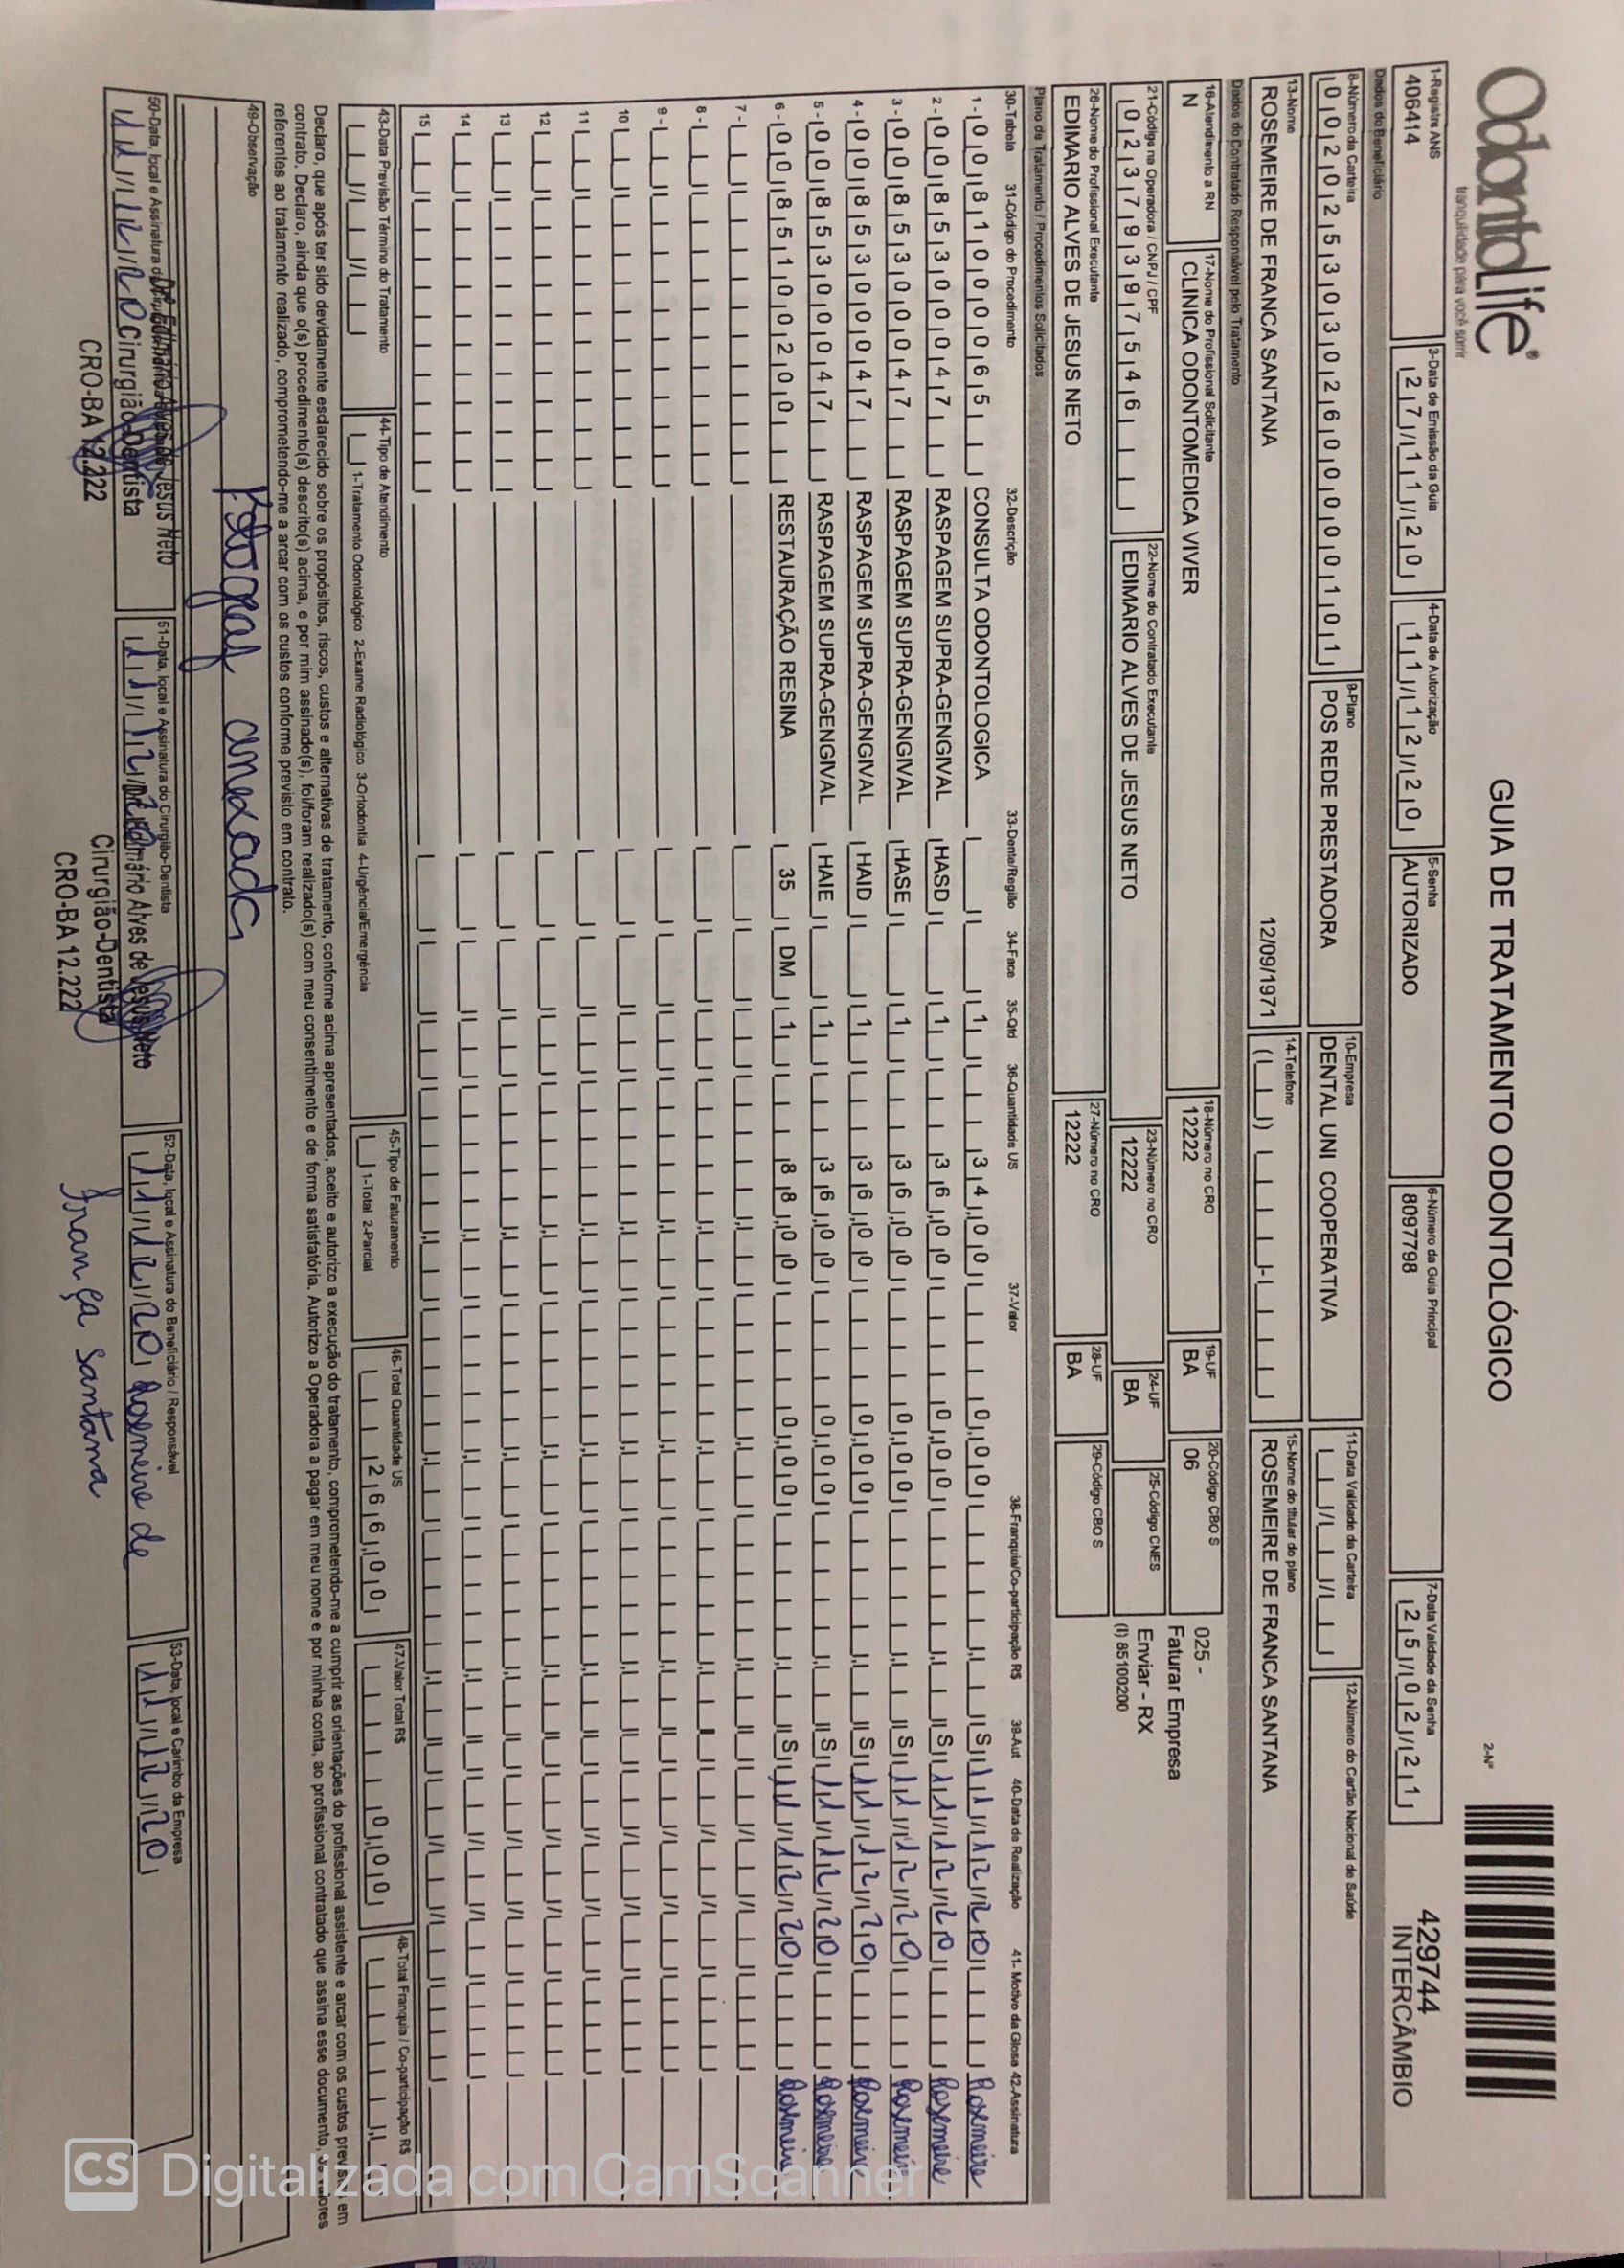 OdontoLife®
tranquilidade para você sorrir
GUIA DE TRATAMENTO ODONTOLÓGICO
2-Nº
429744
INTERCÂMBIO
1-Registro ANS
406414
3-Data de Emissão da Guia
27/11/20
4-Data de Autorização
11/12/20
5-Senha
AUTORIZADO
6-Número da Guia Principal
8097798
7-Data Validade da Senha
25/02/21
Dados do Beneficiário
8-Número da Carteira
00202530302600000101
9-Plano
POS REDE PRESTADORA
10-Empresa
DENTAL UNI COOPERATIVA
11-Data Validade da Carteira
12-Número do Cartão Nacional de Saúde
13-Nome
ROSEMEIRE DE FRANCA SANTANA 12/09/1971
14-Telefone
15-Nome do titular do plano
ROSEMEIRE DE FRANCA SANTANA
Dados do Contratado Responsável pelo Tratamento
16-Atendimento a RN
N
17-Nome do Profissional Solicitante
CLINICA ODONTOMEDICA VIVER
18-Número no CRO
12222
19-UF
BA
20-Código CBO S
06
025 -
Faturar Empresa
21-Código na Operadora / CNPJ / CPF
02379397546
22-Nome do Contratado Executante
EDIMARIO ALVES DE JESUS NETO
23-Número no CRO
12222
24-UF
BA
25-Código CNES
Enviar - RX
(I) 85100200
26-Nome do Profissional Executante
EDIMARIO ALVES DE JESUS NETO
27-Número no CRO
12222
28-UF
BA
29-Código CBO S
Plano de Tratamento / Procedimentos Solicitados
30-Tabela 31-Código do Procedimento 32-Descrição 33-Dente/Região 34-Face 35-Qtd 36-Quantidade US 37-Valor 38-Franquia/Co-participação R$ 39-Aut 40-Data de Realização 41- Motivo da Glosa 42-Assinatura
1 - 00 81000065 CONSULTA ODONTOLOGICA 1 34,00 0,00 S 11/12/20 Rosemeire
2 - 00 85300047 RASPAGEM SUPRA-GENGIVAL HASD 1 36,00 0,00 S 11/12/20 Rosemeire
3 - 00 85300047 RASPAGEM SUPRA-GENGIVAL HASE 1 36,00 0,00 S 11/12/20 Rosemeire
4 - 00 85300047 RASPAGEM SUPRA-GENGIVAL HAID 1 36,00 0,00 S 11/12/20 Rosemeire
5 - 00 85300047 RASPAGEM SUPRA-GENGIVAL HAIE 1 36,00 0,00 S 11/12/20 Rosemeire
6 - 00 85100200 RESTAURAÇÃO RESINA 35 DM 1 88,00 0,00 S 11/12/20 Rosemeire
7 -
8 -
9 -
10
11
12
13
14
15
43-Data Previsão Término do Tratamento
44-Tipo de Atendimento
1-Tratamento Odontológico 2-Exame Radiológico 3-Ortodontia 4-Urgência/Emergência
45-Tipo de Faturamento
1-Total 2-Parcial
46-Total Quantidade US
266,00
47-Valor Total R$
0,00
48-Total Franquia / Co-participação R$
Declaro, que após ter sido devidamente esclarecido sobre os propósitos, riscos, custos e alternativas de tratamento, conforme acima apresentados, aceito e autorizo a execução do tratamento, comprometendo-me a cumprir as orientações do profissional assistente e arcar com os custos previstos em
contrato. Declaro, ainda que o(s) procedimento(s) descrito(s) acima, e por mim assinado(s), foi/foram realizado(s) com meu consentimento e de forma satisfatória. Autorizo a Operadora a pagar em meu nome e por minha conta, ao profissional contratado que assina esse documento, os valores
referentes ao tratamento realizado, comprometendo-me a arcar com os custos conforme previsto em contrato.
49-Observação
anexada
50-Data, local e Assinatura do
11/12/20
Dr. Edimário Alves de Jesus Neto
Cirurgião-Dentista
CRO-BA 12.222
51-Data, local e Assinatura do Cirurgião-Dentista
11/12/20
Dr. Edimário Alves de Jesus Neto
Cirurgião-Dentista
CRO-BA 12.222
52-Data, local e Assinatura do Beneficiário / Responsável
11/12/20 Rosemeire de
França Santana
53-Data, local e Carimbo da Empresa
11/12/20
CS Digitalizada com CamScanner